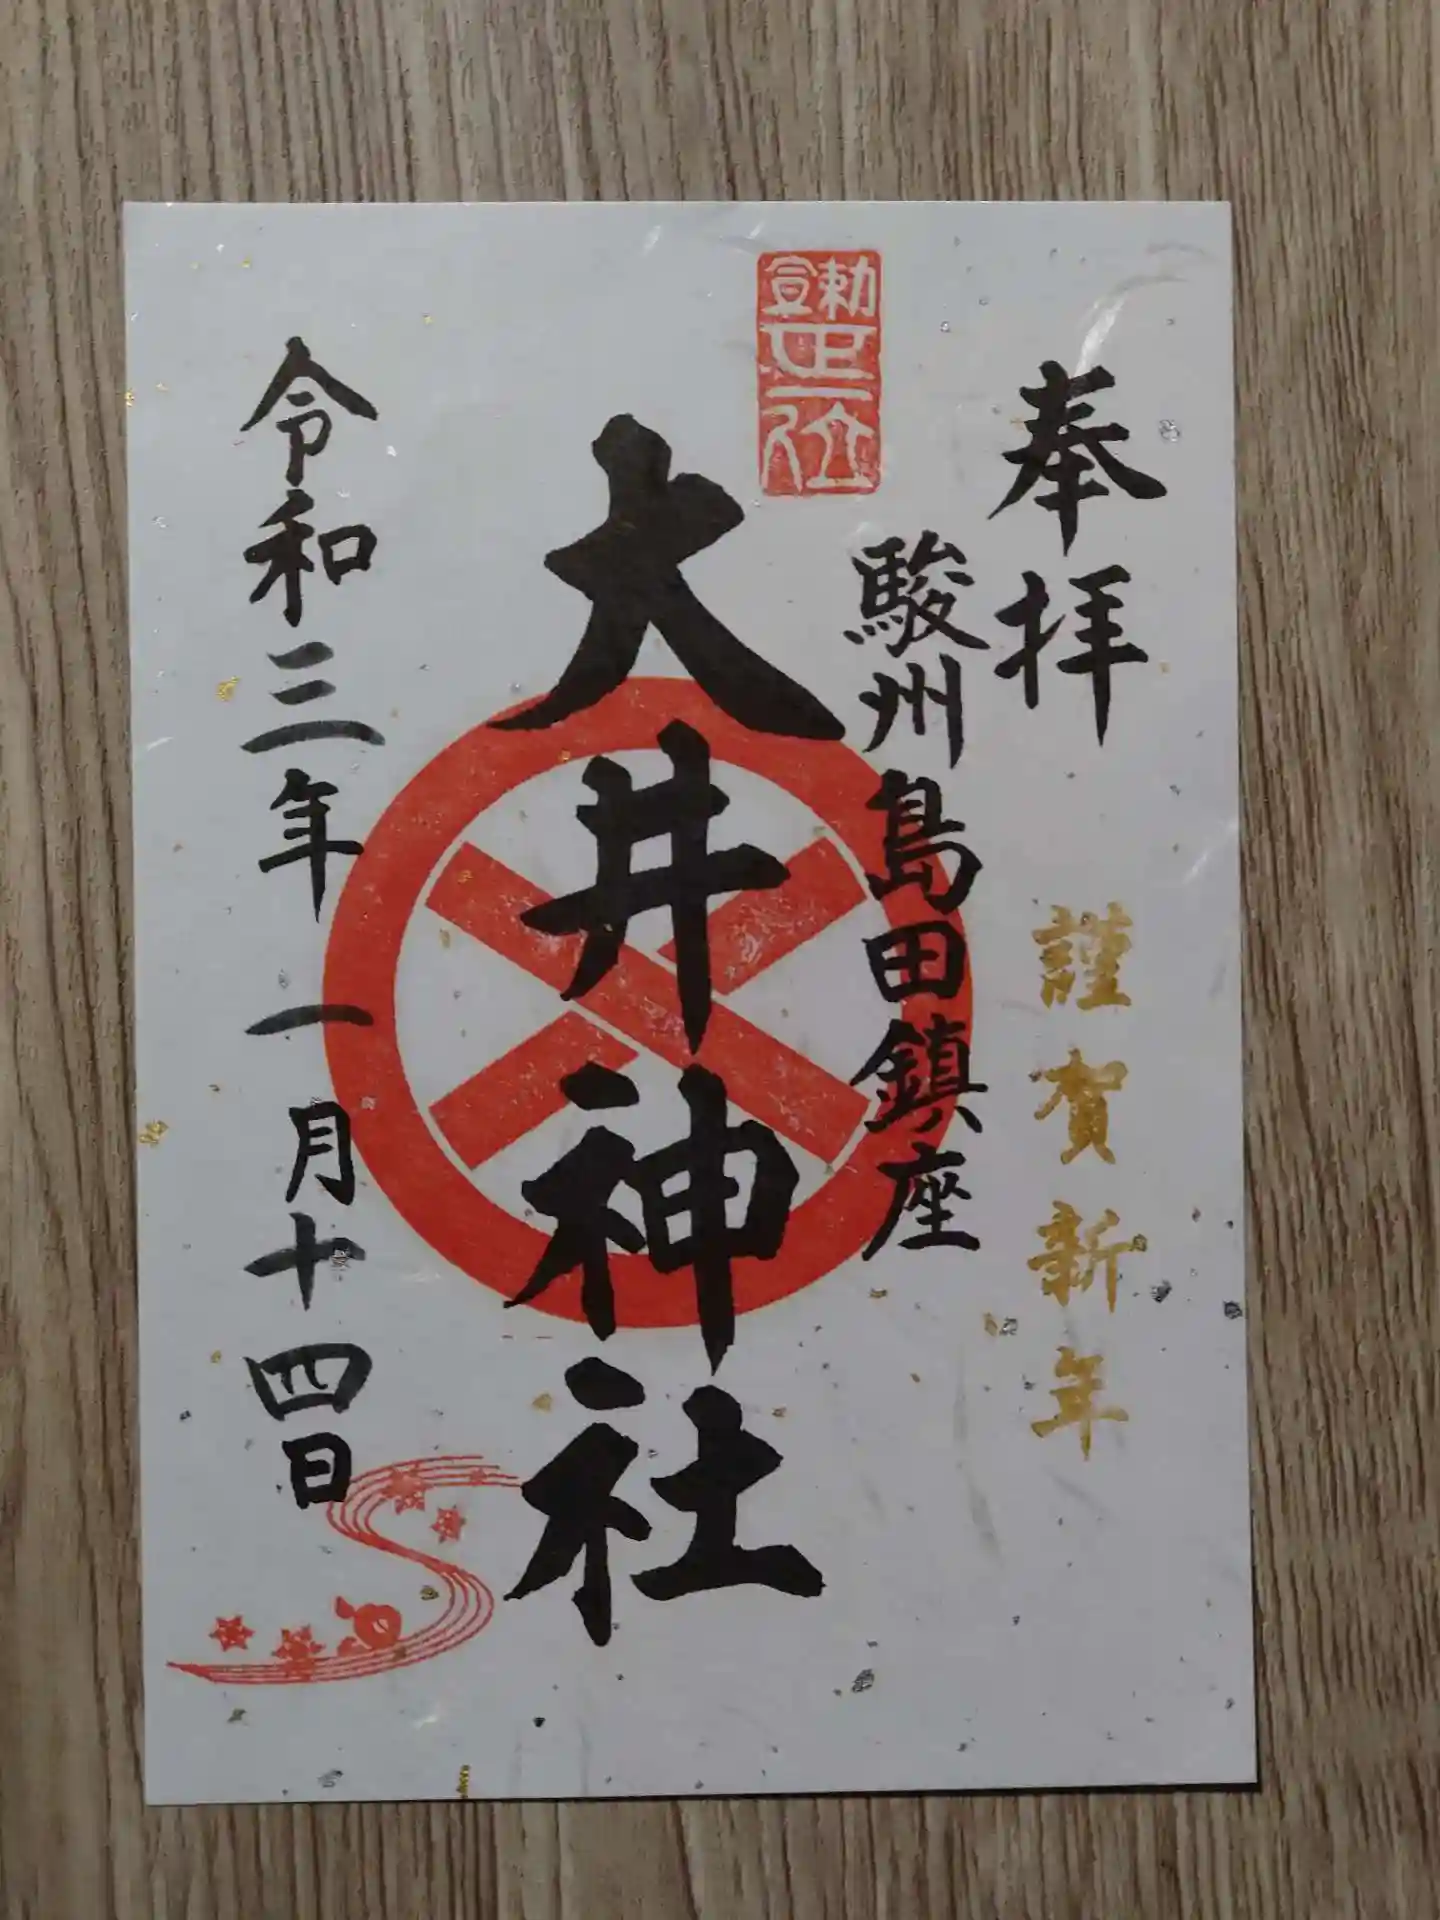 奉拝
謹賀新年
勅宣
正一位
駿州島田鎮座
大井神社
令和三年一月十四日